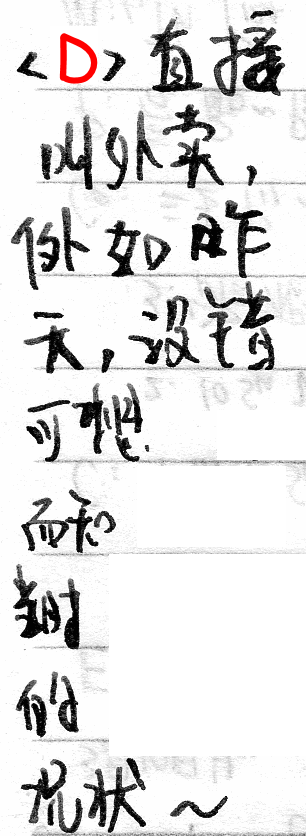 <D>直接
叫外卖，
例如昨
天，没错
可
而
当时
的
状～